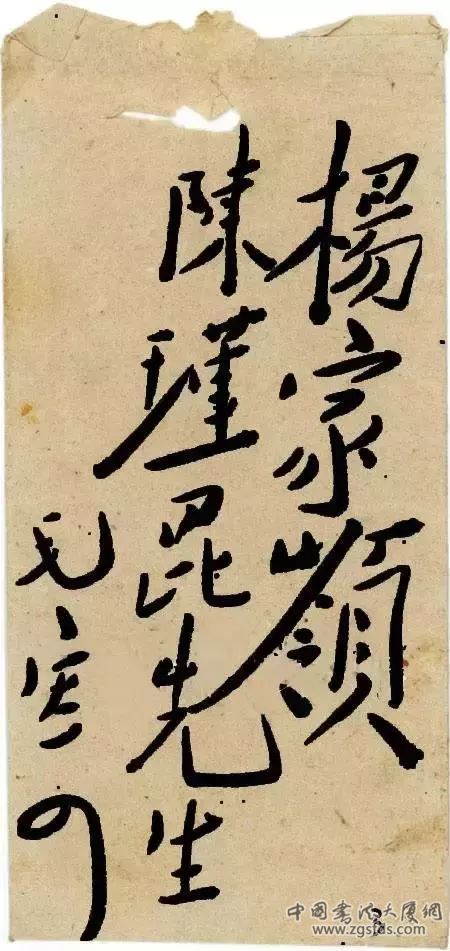 楊家嶺
陳瑾昆先生
毛寄
中国书法大厦網
www.zgsfds.com